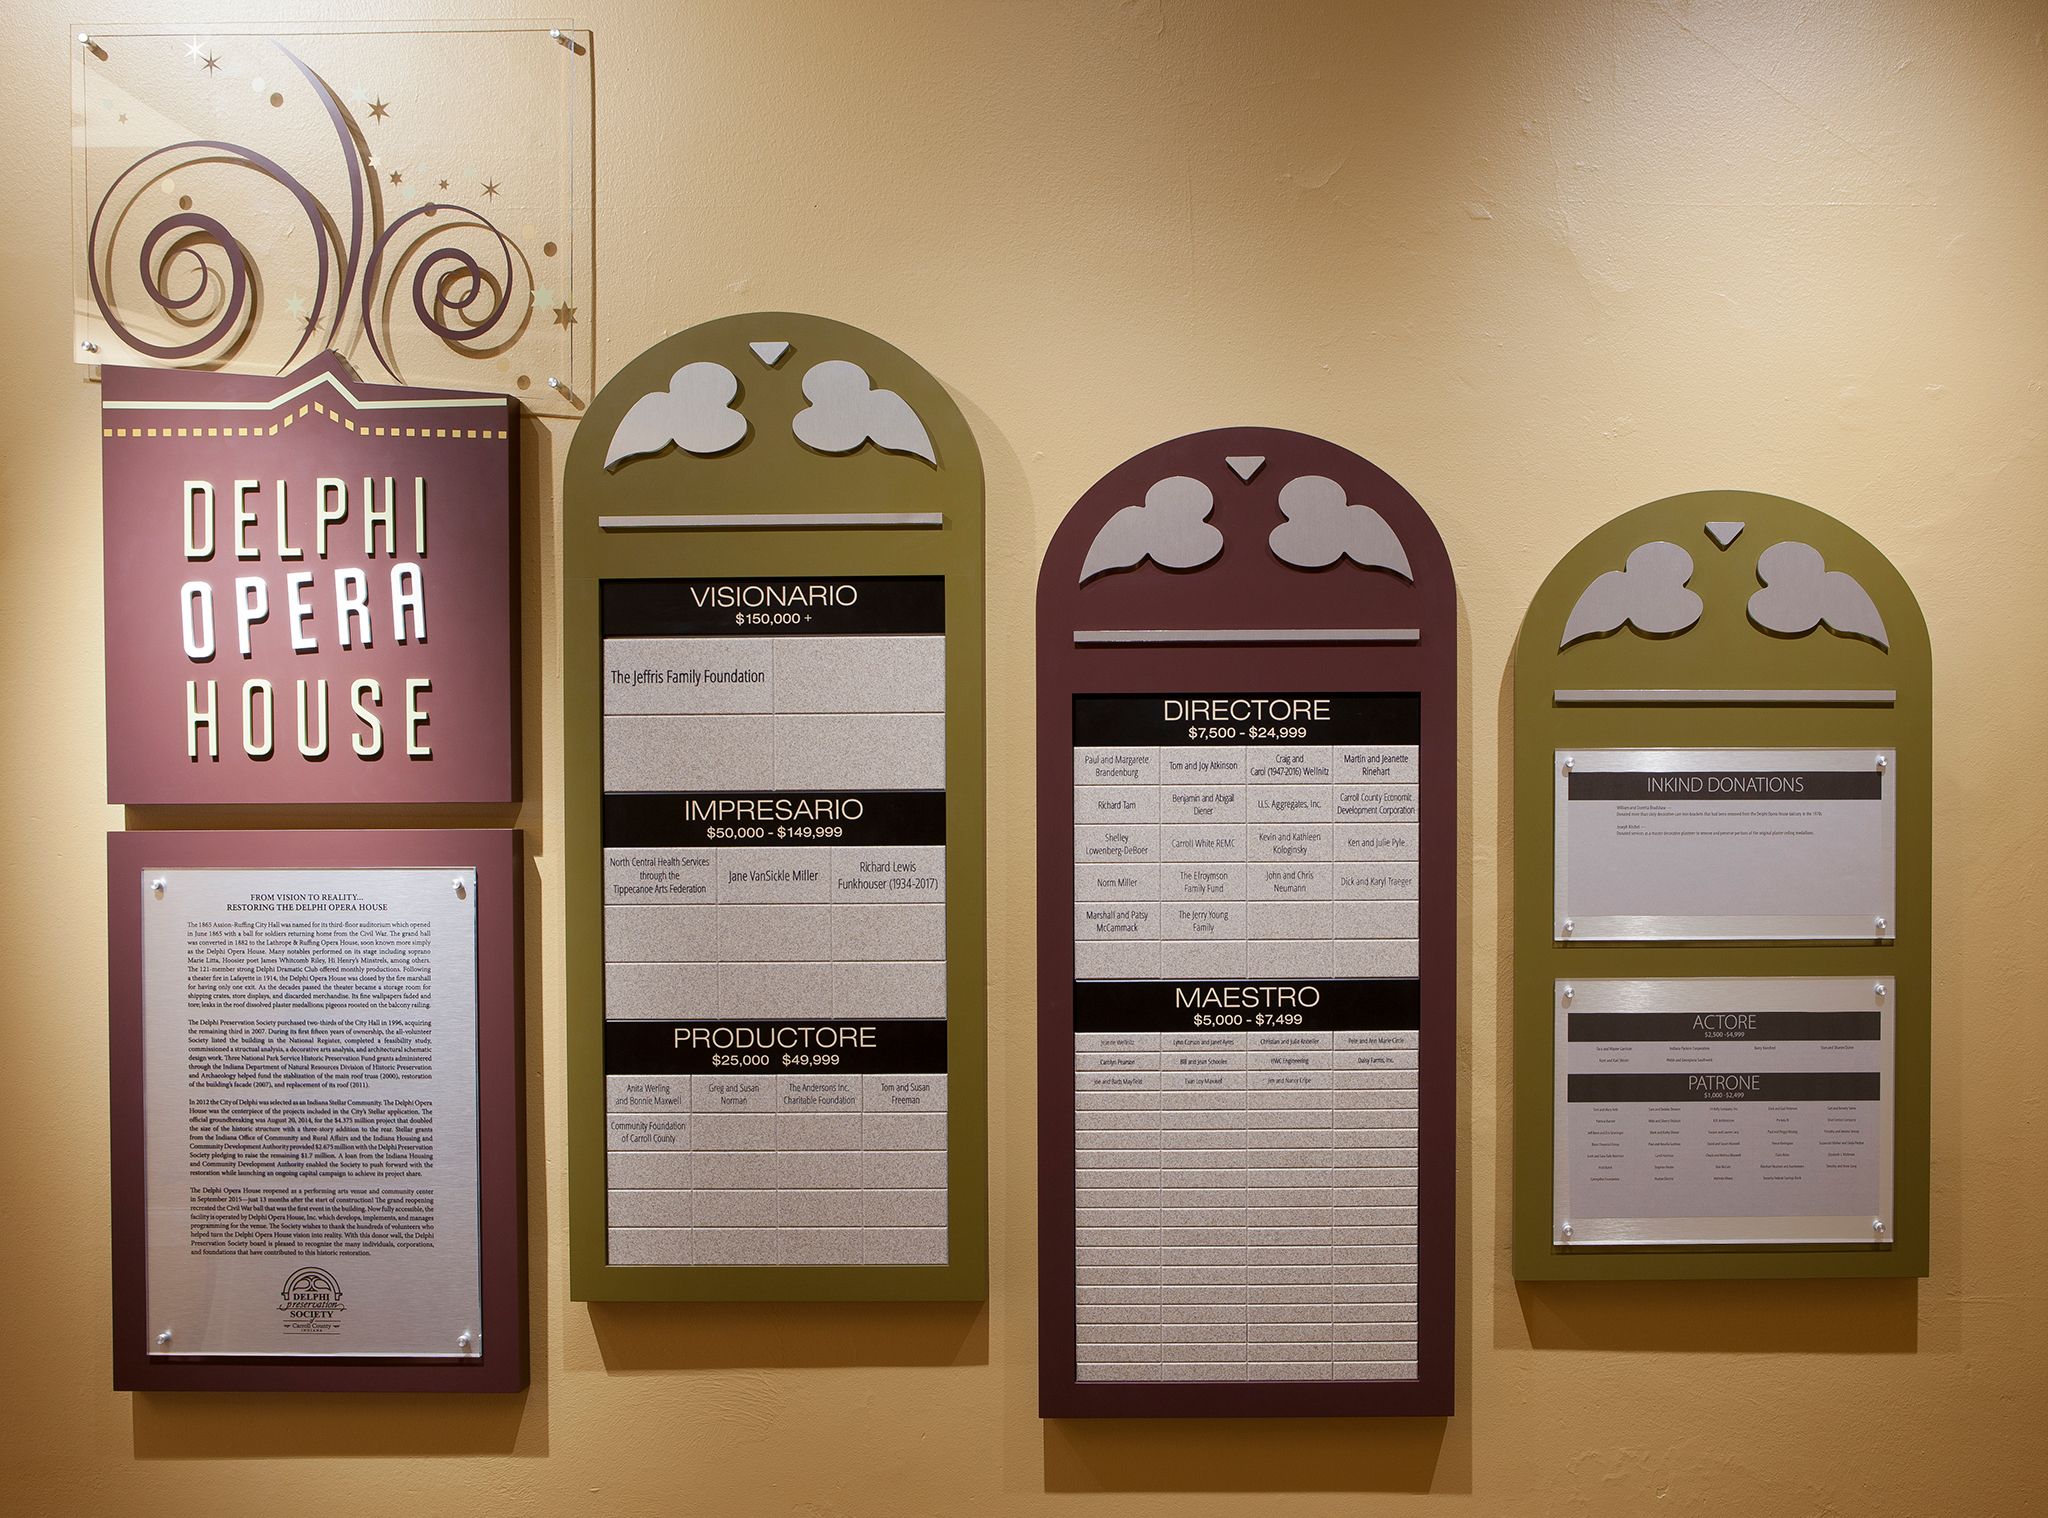 DELPHI
OPERA
HOUSE
FROM VISION TO REALITY...
RESTORING THE DELPHI OPERA HOUSE
The 1865 Assion-Ruffing City Hall was named for its third-floor auditorium which opened
in June 1865 with a ball for soldiers returning home from the Civil War. The grand hall
was converted in 1882 to the Lathrope & Ruffing Opera House, soon known more simply
as the Delphi Opera House. Many notables performed on its stage including soprano
Marie Litta, Hoosier poet James Whitcomb Riley, Hi Henry's Minstrels, among others.
The 121-member strong Delphi Dramatic Club offered monthly productions. Following
a theater fire in Lafayette in 1914, the Delphi Opera House was closed by the fire marshall
for having only one exit. As the decades passed the theater became a storage room for
shipping crates, store displays, and discarded merchandise. Its fine wallpapers faded and
tore; leaks in the roof dissolved plaster medallions; pigeons roosted on the balcony railing.
The Delphi Preservation Society purchased two-thirds of the City Hall in 1996, acquiring
the remaining third in 2007. During its first fifteen years of ownership, the all-volunteer
Society listed the building in the National Register, completed a feasibility study,
commissioned a structual analysis, a decorative arts analysis, and architectural schematic
design work. Three National Park Service Historic Preservation Fund grants administered
through the Indiana Department of Natural Resources Division of Historic Preservation
and Archaeology helped fund the stablization of the main roof truss (2000), restoration
of the building's facade (2007), and replacement of its roof (2011).
In 2012 the City of Delphi was selected as an Indiana Stellar Community. The Delphi Opera
House was the centerpiece of the projects included in the City's Stellar application. The
official groundbreaking was August 20, 2014, for the $4.375 million project that doubled
the size of the historic structure with a three-story addition to the rear. Stellar grants
from the Indiana Office of Community and Rural Affairs and the Indiana Housing and
Community Development Authority provided $2.675 million with the Delphi Preservation
Society pledging to raise the remaining $1.7 million. A loan from the Indiana Housing
and Community Development Authority enabled the Society to push forward with the
restoration while launching an ongoing capital campaign to achieve its project share.
The Delphi Opera House reopened as a performing arts venue and community center
in September 2015—just 13 months after the start of construction! The grand reopening
recreated the Civil War ball that was the first event in the building. Now fully accessible, the
facility is operated by Delphi Opera House, Inc. which develops, implements, and manages
programming for the venue. The Society wishes to thank the hundreds of volunteers who
helped turn the Delphi Opera House vision into reality. With this donor wall, the Delphi
Preservation Society board is pleased to recognize the many individuals, corporations,
and foundations that have contributed to this historic restoration.
DELPHI
preservation
SOCIETY
of
Carroll County
INDIANA
VISIONARIO
$150,000 +
The Jeffris Family Foundation
IMPRESARIO
$50,000 - $149,999
North Central Health Services
through the
Tippecanoe Arts Federation
Jane VanSickle Miller
Richard Lewis
Funkhouser (1934-2017)
PRODUCTORE
$25,000 $49,999
Anita Werling
and Bonnie Maxwell
Greg and Susan
Norman
The Andersons Inc.
Charitable Foundation
Tom and Susan
Freeman
Community Foundation
of Carroll County
DIRECTORE
$7,500 - $24,999
Paul and Margarete
Brandenburg
Tom and Joy Atkinson
Craig and
Carol (1947-2016) Wellnitz
Martin and Jeanette
Rinehart
Richard Tam
Benjamin and Abigail
Diener
U.S. Aggregates, Inc.
Carroll County Economic
Development Corporation
Shelley
Lowenberg-DeBoer
Carroll White REMC
Kevin and Kathleen
Kologinsky
Ken and Julie Pyle
Norm Miller
The Elroymson
Family Fund
John and Chris
Neumann
Dick and Karyl Traeger
Marshall and Patsy
McCammack
The Jerry Young
Family
MAESTRO
$5,000 - $7,499
Joanne Wellnitz
Lynn Corson and Janet Ayres
Christian and Julie Knoeller
Pete and Ann Marie Circle
Carolyn Pearson
Bill and Jean Schooler
HWC Engineering
Daisy Farms, Inc.
Joe and Barb Mayfield
Evan Loy Maxwell
Jim and Nancy Cripe
INKIND DONATIONS
William and Loretta Bradshaw —
Donated more than sixty decorative cast iron brackets that had been removed from the Delphi Opera House balcony in the 1970s
Joseph Kitchel —
Donated services as a master decorative plasterer to remove and preserve portions of the original plaster ceiling medallions.
ACTORE
$2,500 -$4,999
PATRONE
$1,000 -$2,499